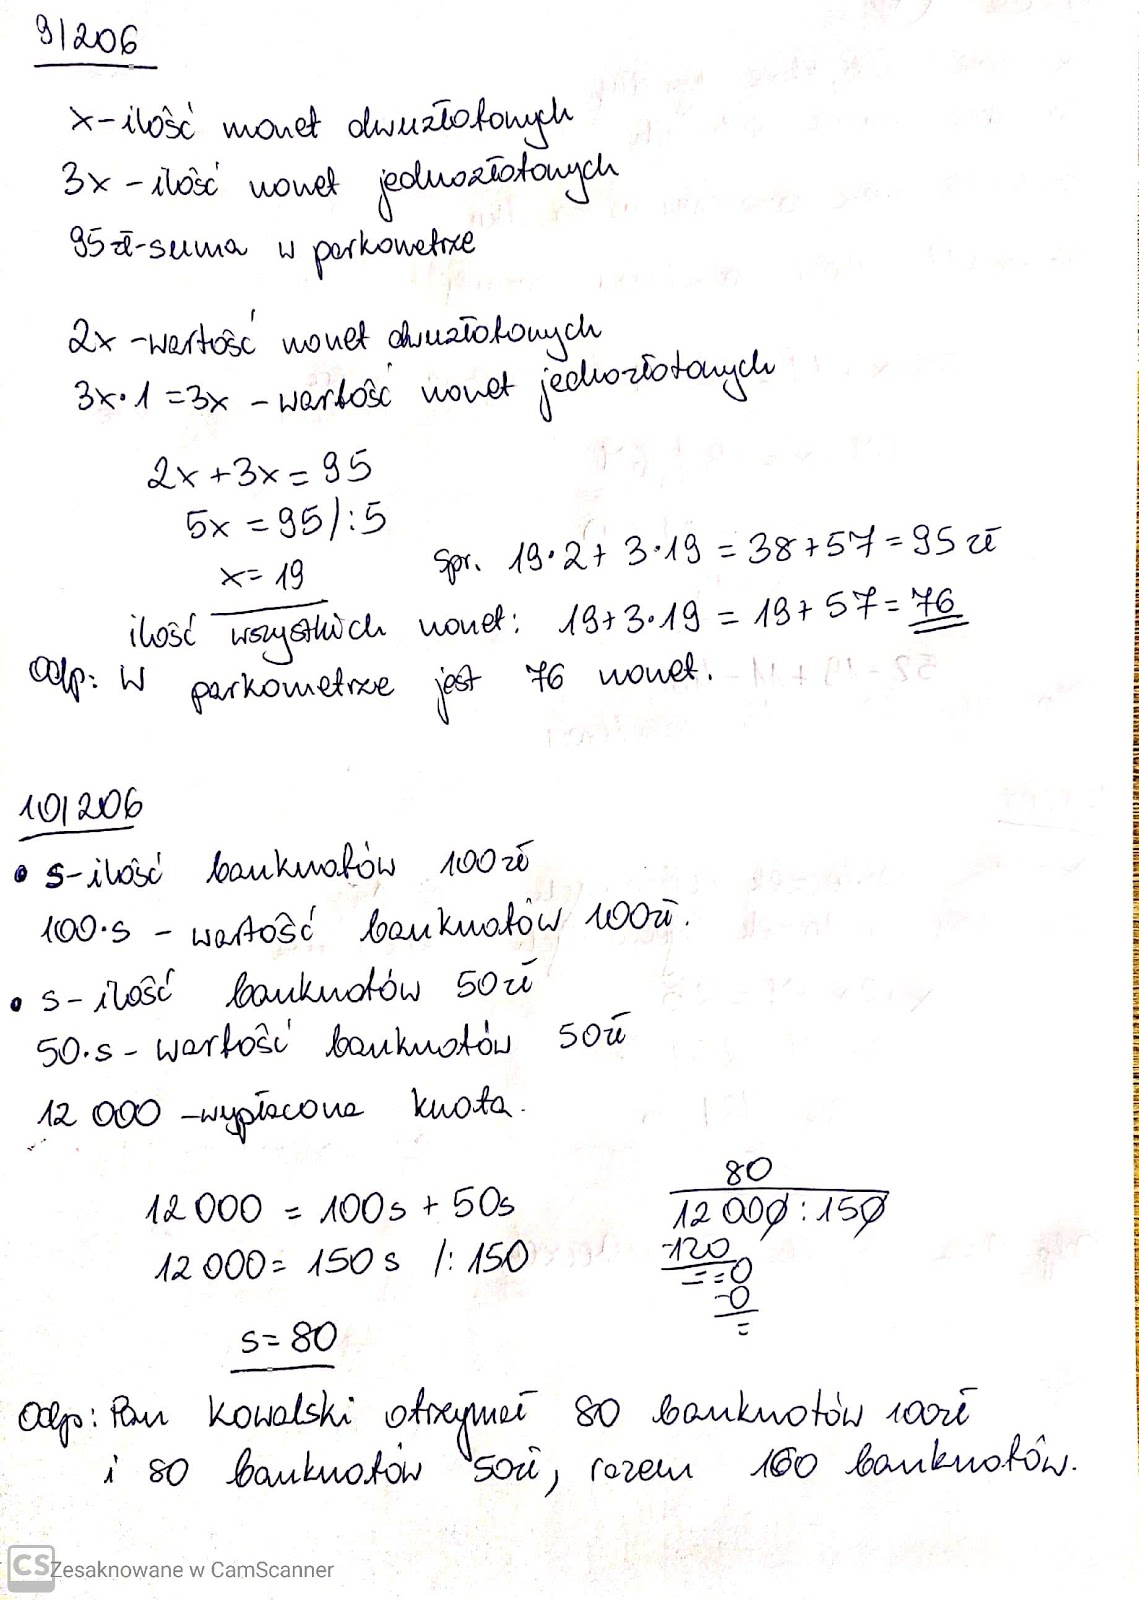 9/206
x - ilość monet dwuzłotowych
3x - ilość monet jednozłotowych
95 zł - suma w parkometrze
2x - wartość monet dwuzłotowych
3x·1 = 3x - wartość monet jednozłotowych
2x + 3x = 95
5x = 95 /:5
x = 19
Spr. 19·2 + 3·19 = 38 + 57 = 95 zł
ilość wszystkich monet: 19 + 3·19 = 19 + 57 = 76
Odp: W parkometrze jest 76 monet.
10/206
• s - ilość banknotów 100zł
100·s - wartość banknotów 100zł.
• s - ilość banknotów 50zł
50·s - wartość banknotów 50zł
12 000 - wypłacona kwota.
12 000 = 100s + 50s
12 000 = 150 s /: 150
s = 80
80
12 000 : 150
-120
= = 0
-0
=
Odp: Pan Kowalski otrzymał 80 banknotów 100zł
i 80 banknotów 50zł, razem 160 banknotów.
CS Zesaknowane w CamScanner